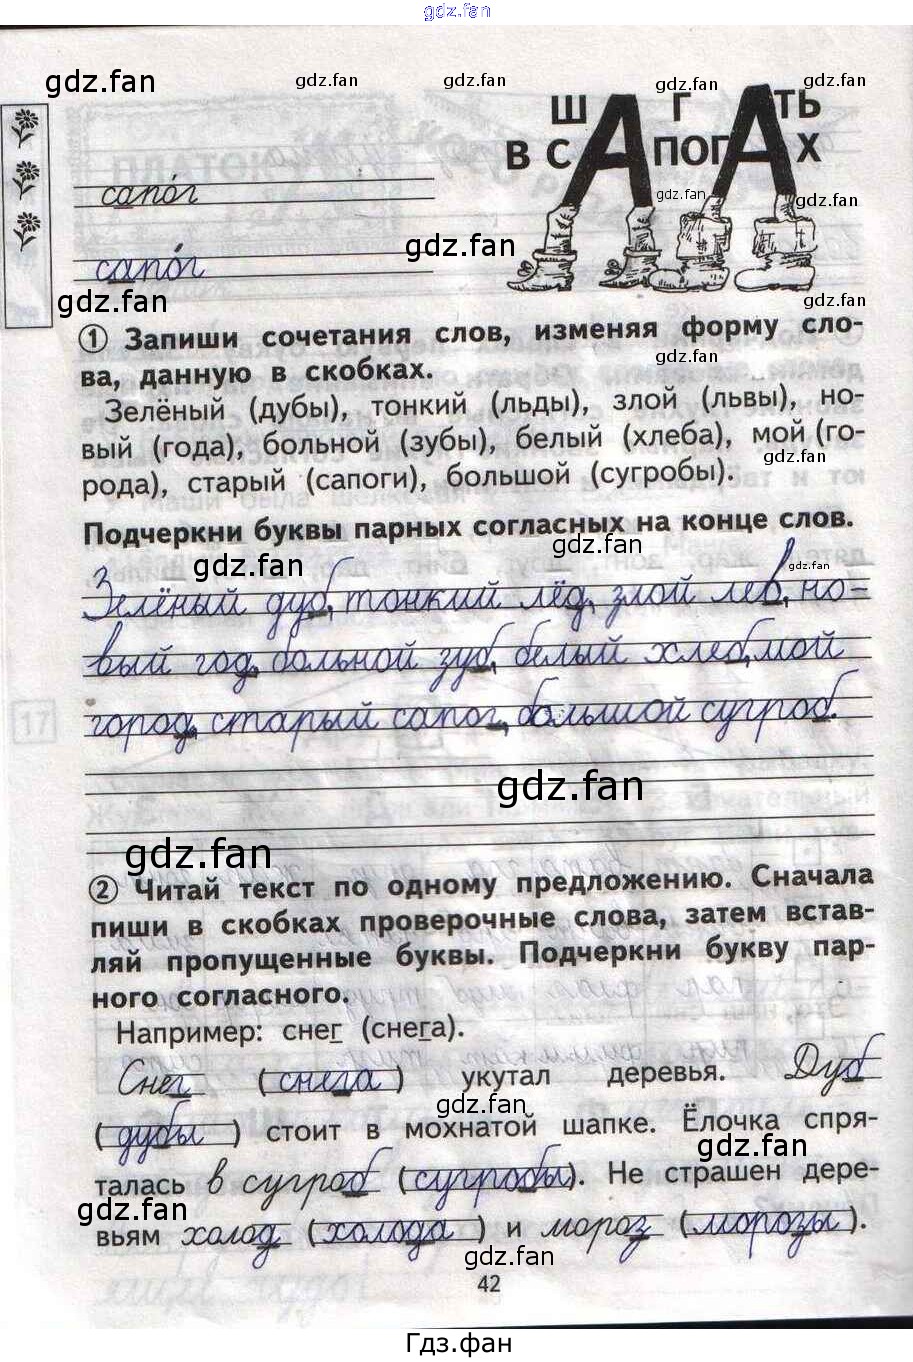 gdz.fan
gdz.fan gdz.fan gdz.fan gdz.fan
ШАГАТЬ
В САПОГАХ
gdz.fan
gdz.fan
сапо́г
gdz.fan
сапо́г
gdz.fan gdz.fan
1 Запиши сочетания слов, изменяя форму сло-
gdz.fan
ва, данную в скобках.
Зелёный (дубы), тонкий (льды), злой (львы), но-
вый (года), больной (зубы), белый (хлеба), мой (го-
gdz.fan
рода), старый (сапоги), большой (сугробы).
Подчеркни буквы парных согласных на конце слов.
gdz.fan gdz.fan gdz.fan
Зелёный дуб, тонкий лёд, злой лев, но-
вый год, больной зуб, белый хлеб, мой
город, старый сапог, большой сугроб.
17
gdz.fan
gdz.fan
2 Читай текст по одному предложению. Сначала
пиши в скобках проверочные слова, затем встав-
ляй пропущенные буквы. Подчеркни букву пар-
ного согласного.
Например: снег (снега).
Снег (снега) укутал деревья. Дуб
gdz.fan
(дубы) стоит в мохнатой шапке. Ёлочка спря-
gdz.fan
талась в сугроб (сугробы). Не страшен дере-
gdz.fan
вьям холод (холода) и мороз (морозы).
gdz.fan
42
Гдз.фан